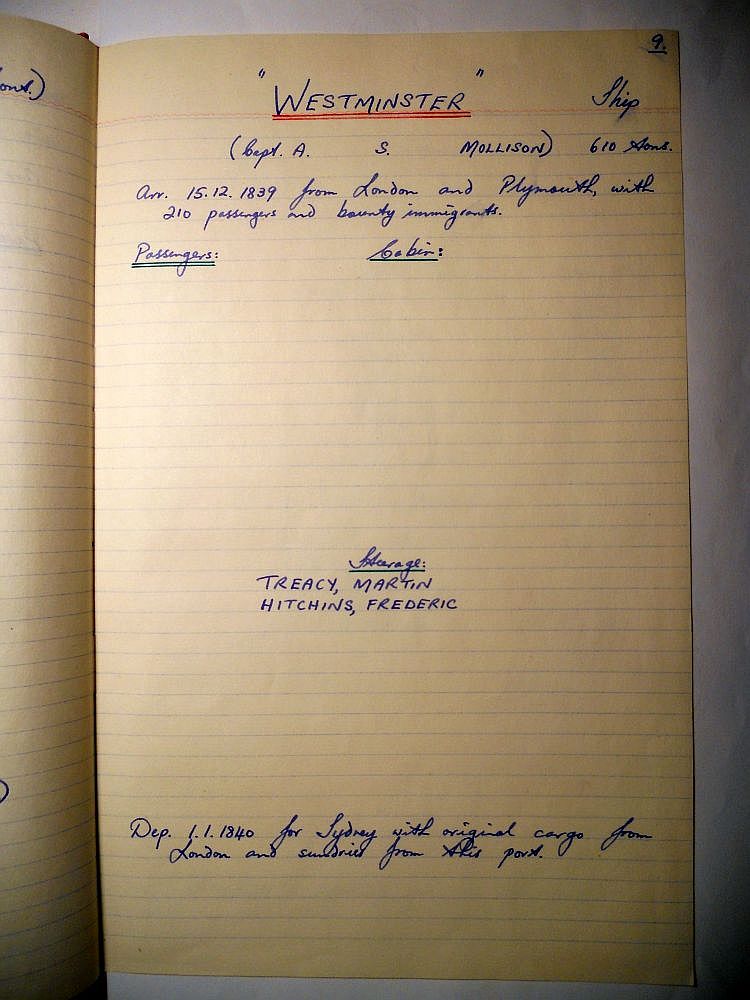 9.
"WESTMINSTER" Ship
(Capt. A. S. MOLLISON) 610 tons.
Arr. 15.12.1839 from London and Plymouth, with
210 passengers and bounty immigrants.
Passengers: Cabin:
Steerage:
TREACY, MARTIN
HITCHINS, FREDERIC
Dep. 1.1.1840 for Sydney with original cargo from
London and sundries from this port.